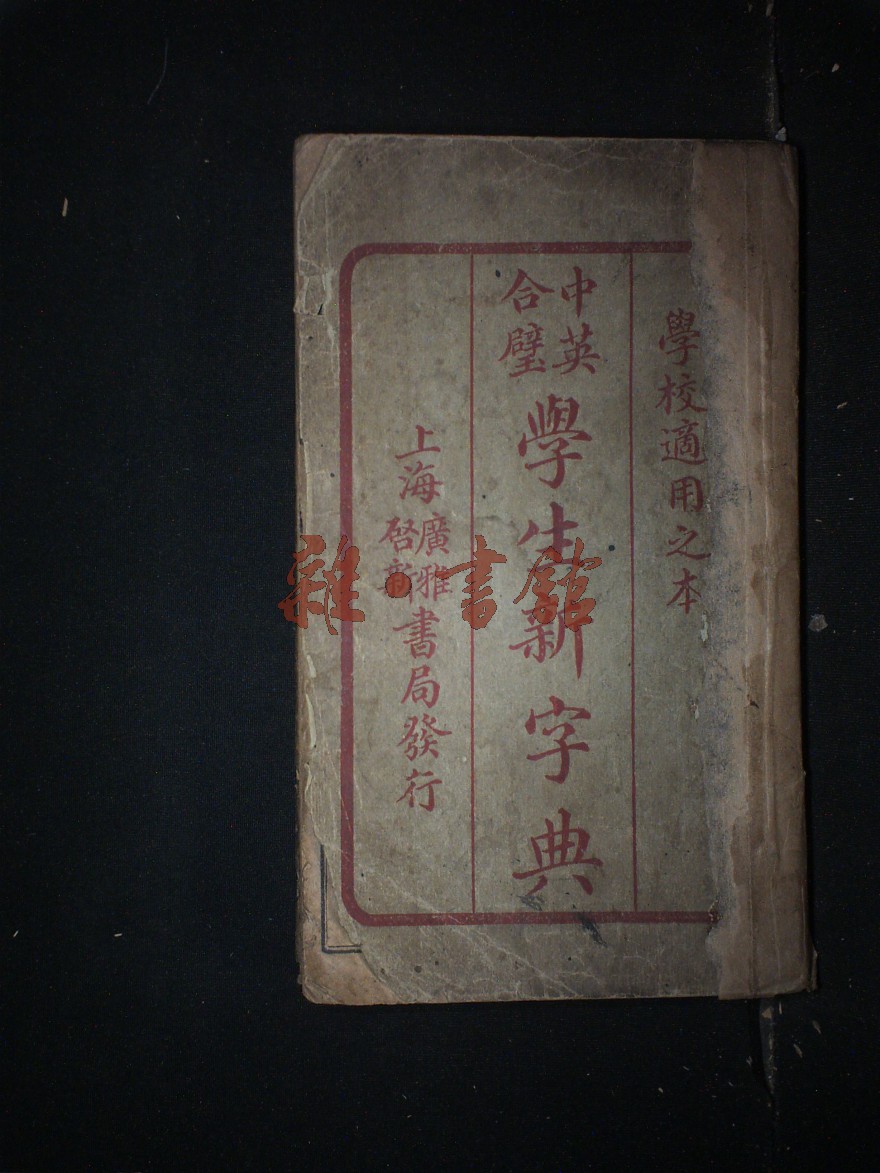 學校適用之本
中英
合璧
學生新字典
上海廣雅啓新書局發行
雜·書館